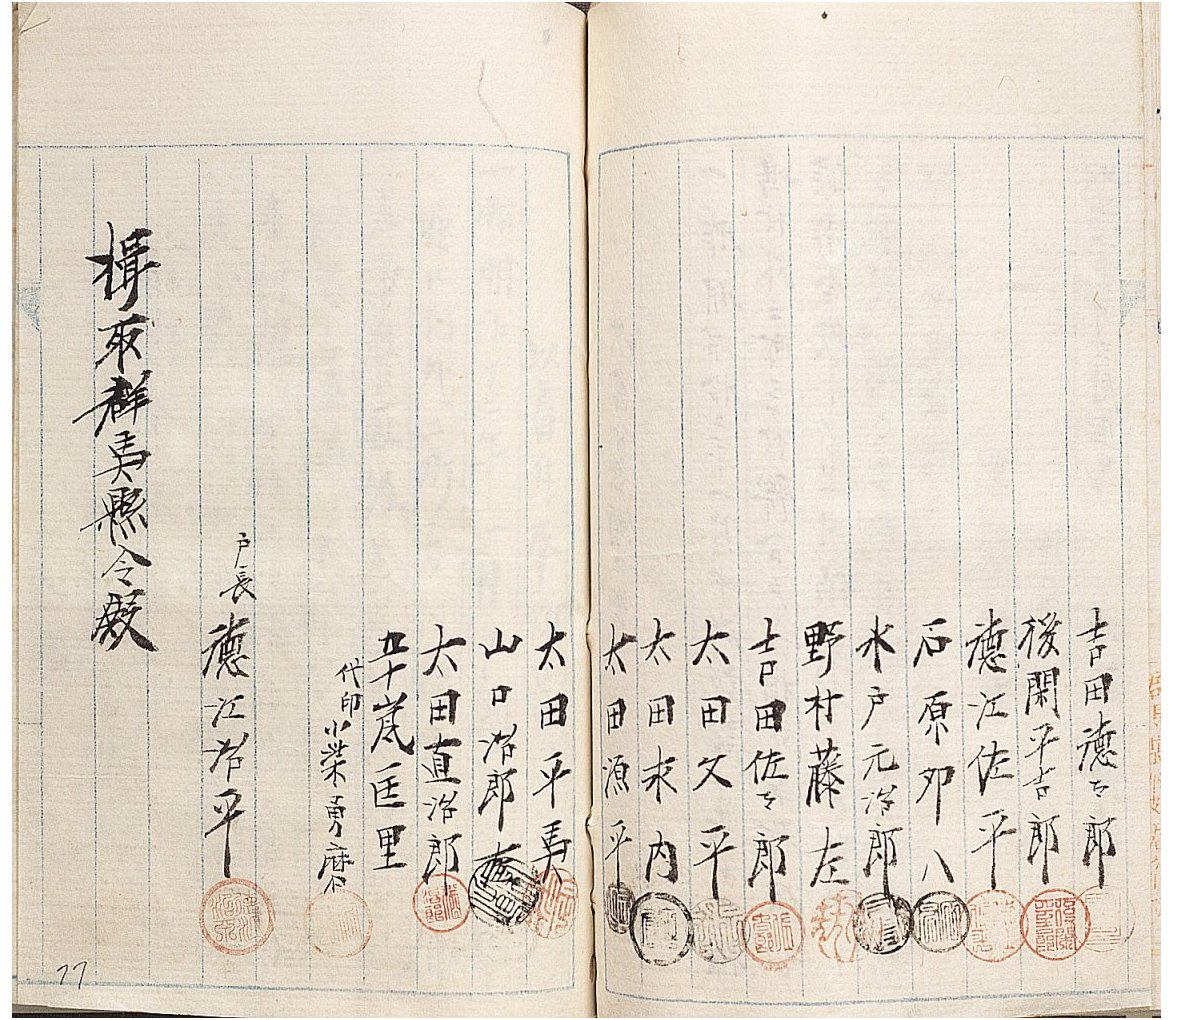 吉田徳太郎
後閑平吉郎
徳江佐平
石原卯八
水戸元治郎
野村藤左
吉田佐太郎
太田文平
太田末内
太田源平
太田平馬
山口治郎
太田直治郎
五十嵐匡里
代印 小柴勇磨
戸長 徳江治平
楫取群馬縣令殿
77